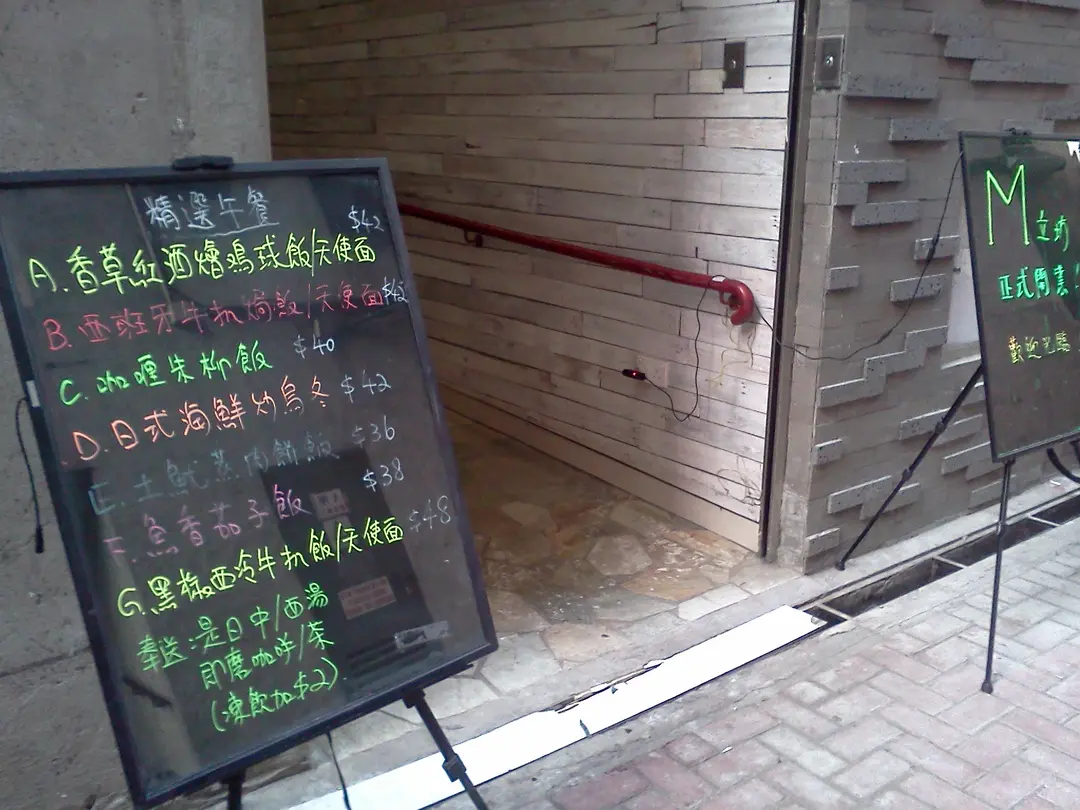 精選午餐
A.香草紅酒燴鴻球飯/天使面 $42
B.西班牙牛扒焗飯/天使面 $42
C.咖喱朱柳飯 $40
D.日式海鮮炒烏冬 $42
E.土魷蒸肉餅飯 $36
F.魚香茄子飯 $38
G.黑椒西冷牛扒飯/天使面 $48
奉送:是日中/西湯
即磨咖啡/茶
(凍飲加$2)
M
正式開業
歡迎光臨